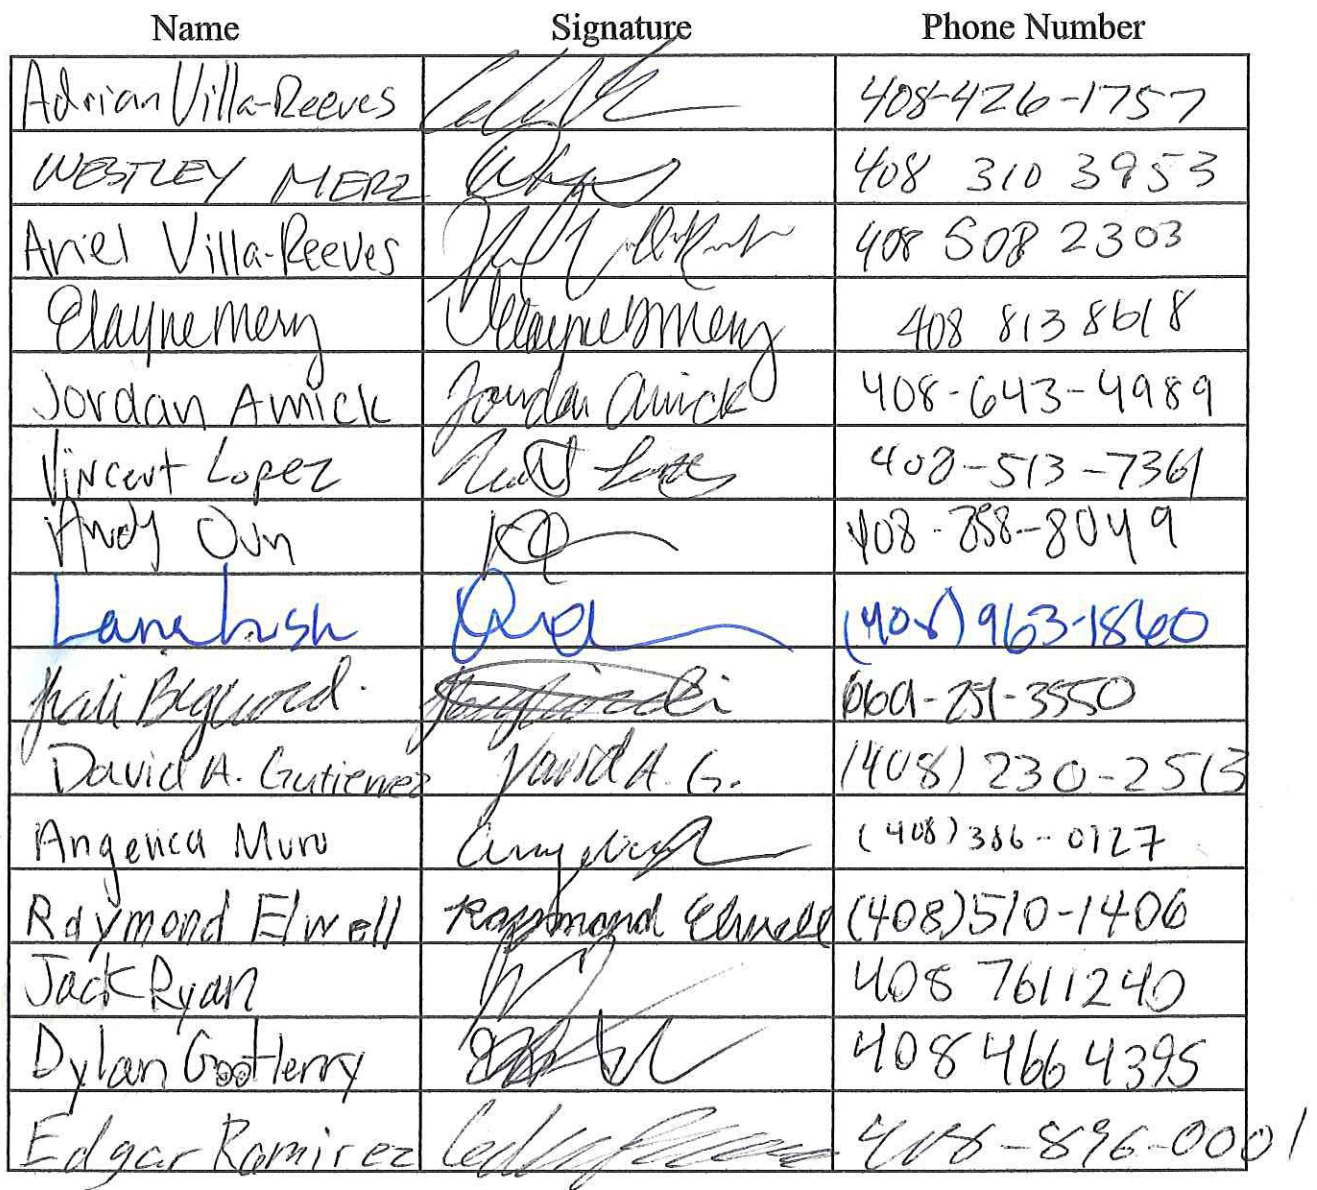 Name Signature Phone Number
Adrian Villa-Reeves 408-426-1757
WESTLEY MERZ 408 310 3953
Ariel Villa-Reeves 408 508 2303
Elayne Merz Elayne Merz 408 813 8618
Jordan Amick Jordan Amick 408-643-4989
Vincent Lopez 408-513-7361
Andy Oun 408-858-8049
Lana (408) 963-1860
David A. Gutierrez David A. G. (408) 230-2513
Angelica Muro (408) 386-0127
Raymond Elwell Raymond Elwell (408) 510-1406
Jack Ryan 408 7611240
Dylan 408 466 4395
Edgar Ramirez 408-896-0001